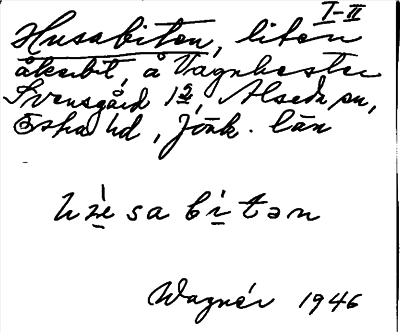 I-II
Husabiten, liten
åkerbit, å Vagnhester
Svensgård 1 2/2, Alseda sn,
Östra hd, Jönk. län
bitən
Wagnér 1946